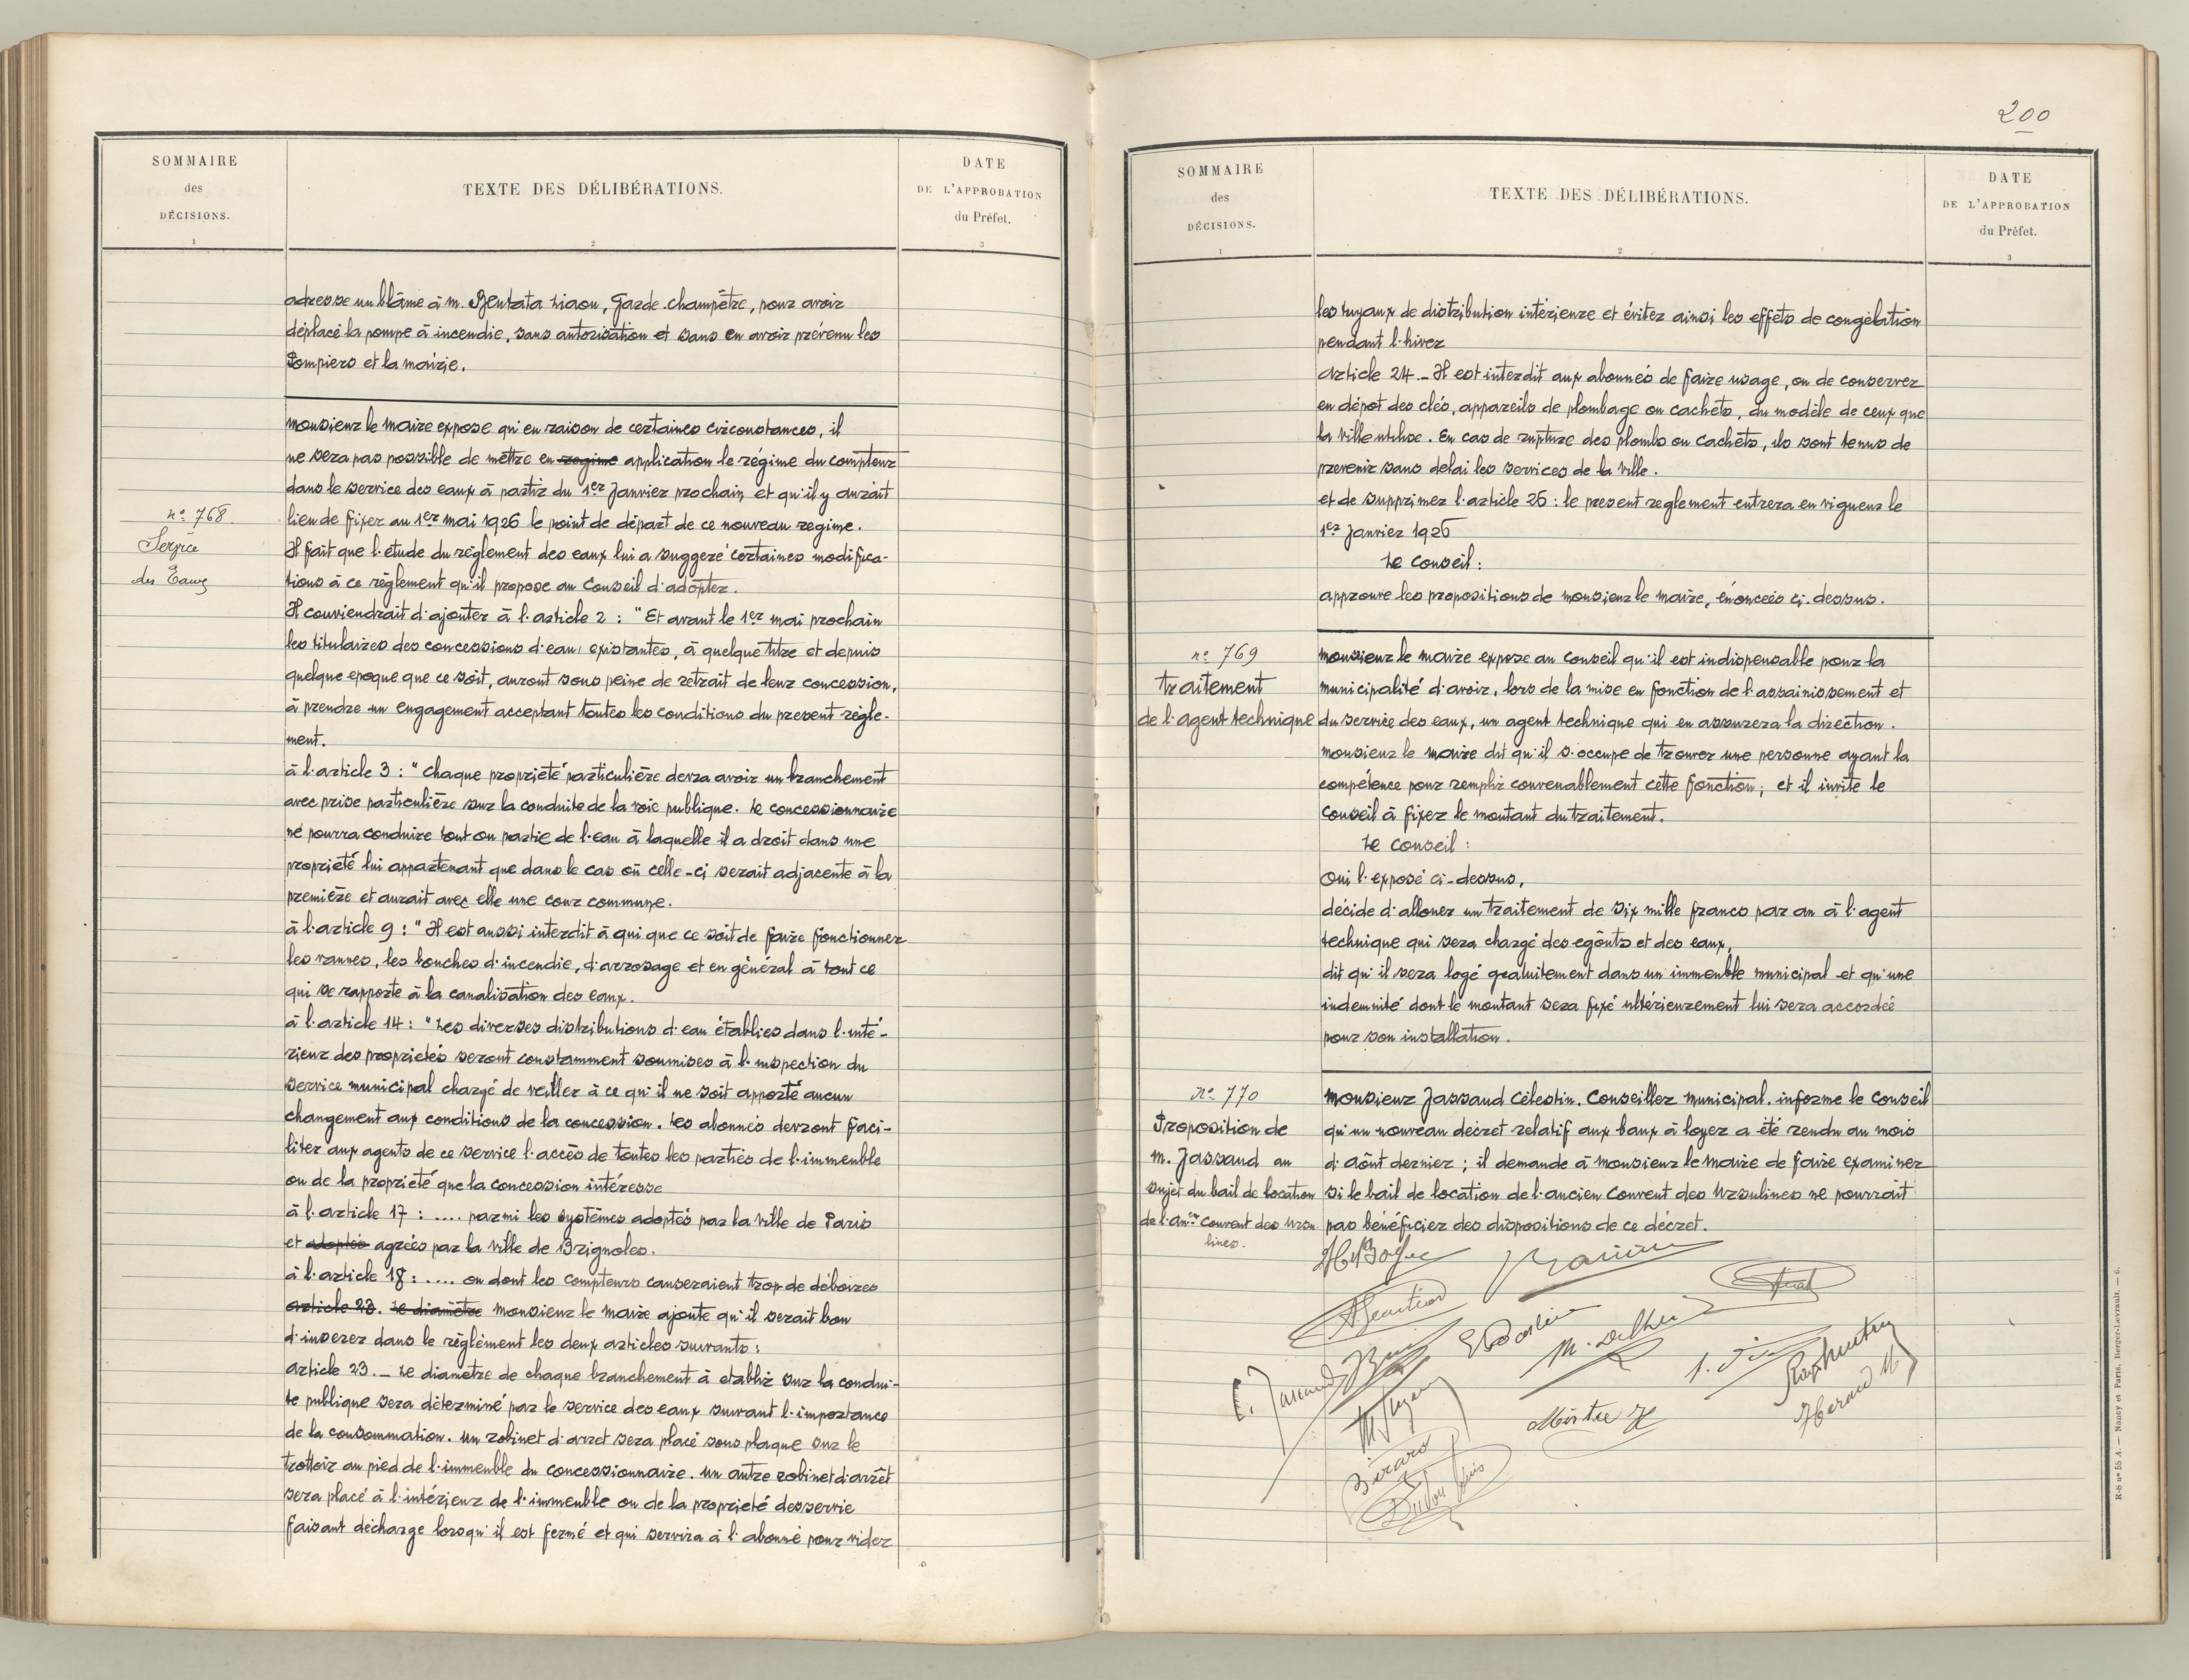 SOMMAIRE
des
DÉCISIONS.
1
TEXTE DES DÉLIBÉRATIONS.
2
DATE
DE L'APPROBATION
du Préfet.
3
adresse un blâme à M. Bentata Liaou, Garde-champêtre, pour avoir
déplacé la pompe à incendie, sans autorisation et sans en avoir prévenu les
Pompiers et la mairie.
n° 768
Service
des Eaux
Monsieur le Maire expose qu'en raison de certaines circonstances, il
ne sera pas possible de mettre en regime application le régime du compteur
dans le service des eaux à partir du 1er Janvier prochain et qu'il y aurait
lieu de fixer au 1er mai 1926 le point de départ de ce nouveau regime.
Il fait que l'étude du règlement des eaux lui a suggeré certaines modifica-
tions à ce règlement qu'il propose au Conseil d'adopter.
Il conviendrait d'ajouter à l'article 2 : "Et avant le 1er mai prochain
les titulaires des concessions d'eau, existantes, à quelque titre et depuis
quelque epoque que ce soit, auront sous peine de retrait de leur concession,
à prendre un engagement acceptant toutes les conditions du present règle-
ment.
à l'article 3 : "Chaque propriété particulière devra avoir un branchement
avec prise particulière sur la conduite de la voie publique. Le concessionnaire
ne pourra conduire tout ou partie de l'eau à laquelle il a droit dans une
propriété lui appartenant que dans le cas où celle-ci serait adjacente à la
première et aurait avec elle une cour commune.
à l'article 9 : "Il est aussi interdit à qui que ce soit de faire fonctionner
les vannes, les bouches d'incendie, d'arrosage et en général à tout ce
qui se rapporte à la canalisation des eaux.
à l'article 14 : "Les diverses distributions d'eau établies dans l'inté-
rieur des proprietés seront constamment soumises à l'inspection du
service municipal chargé de veiller à ce qu'il ne soit apporté aucun
changement aux conditions de la concession. Les abonnés devront faci-
liter aux agents de ce service l'accès de toutes les parties de l'immeuble
ou de la propriété que la concession intéresse
à l'article 17 : .... parmi les systèmes adoptés par la Ville de Paris
et adoptés agréés par la ville de Brignoles.
à l'article 18 : .... ou dont les compteurs causeraient trop de déboires
article 23. Le diamètre Monsieur le Maire ajoute qu'il serait bon
d'inserer dans le règlement les deux articles suivants :
Article 23._ Le diametre de chaque branchement à etablir sur la condui-
te publique sera déterminé par le service des eaux suivant l'importance
de la consommation. Un robinet d'arret sera placé sous plaque sur le
trottoir au pied de l'immeuble du concessionnaire. Un autre robinet d'arrêt
sera placé à l'intérieur de l'immeuble ou de la propriété desservie
faisant décharge lorsqu'il est fermé et qui servira à l'abonné pour vider
200
SOMMAIRE
des
DÉCISIONS.
1
TEXTE DES DÉLIBÉRATIONS.
2
DATE
DE L'APPROBATION
du Préfet.
3
les tuyaux de distribution intérieure et éviter ainsi les effets de congélation
pendant l'hiver
Article 24._ Il est interdit aux abonnés de faire usage, ou de conserver
en dépot des clés, appareils de plombage ou cachets, du modèle de ceux que
la ville utilise. En cas de rupture des plombs ou cachets, ils sont tenus de
prevenir sans delai les services de la ville.
et de supprimer l'article 26 : le present reglement entrera en vigueur le
1er Janvier 1926
Le Conseil :
approuve les propositions de monsieur le maire, énoncées ci-dessus.
n° 769
Traitement
de l'agent technique
Monsieur le Maire expose au Conseil qu'il est indispensable pour la
municipalité d'avoir, lors de la mise en fonction de l'assainissement et
du service des eaux, un agent technique qui en assurera la direction.
Monsieur le Maire dit qu'il s'occupe de trouver une personne ayant la
compétence pour remplir convenablement cette fonction ; et il invite le
Conseil à fixer le montant du traitement.
Le Conseil :
Oui l'exposé ci-dessus,
décide d'allouer un traitement de six mille francs par an à l'agent
technique qui sera chargé des egôuts et des eaux,
dit qu'il sera logé gratuitement dans un immeuble municipal et qu'une
indemnité dont le montant sera fixé ultérieurement lui sera accordée
pour son installation.
n° 770
Proposition de
M. Jassaud au
sujet du bail de location
de l'ancn couvent des Ursu
lines.
Monsieur Jassaud Célestin. Conseiller Municipal. informe le Conseil
qu'un nouveau décret relatif aux baux à loyer a été rendu au mois
d'aôut dernier ; il demande à Monsieur le Maire de faire examiner
si le bail de location de l'ancien Couvent des Ursulines ne pourrait
pas bénéficier des dispositions de ce décret.
C. Jassaud
Mistre H
Girard
Herand M
R-S n° 55 A. — Nancy et Paris, Berger-Levrault. — 6.